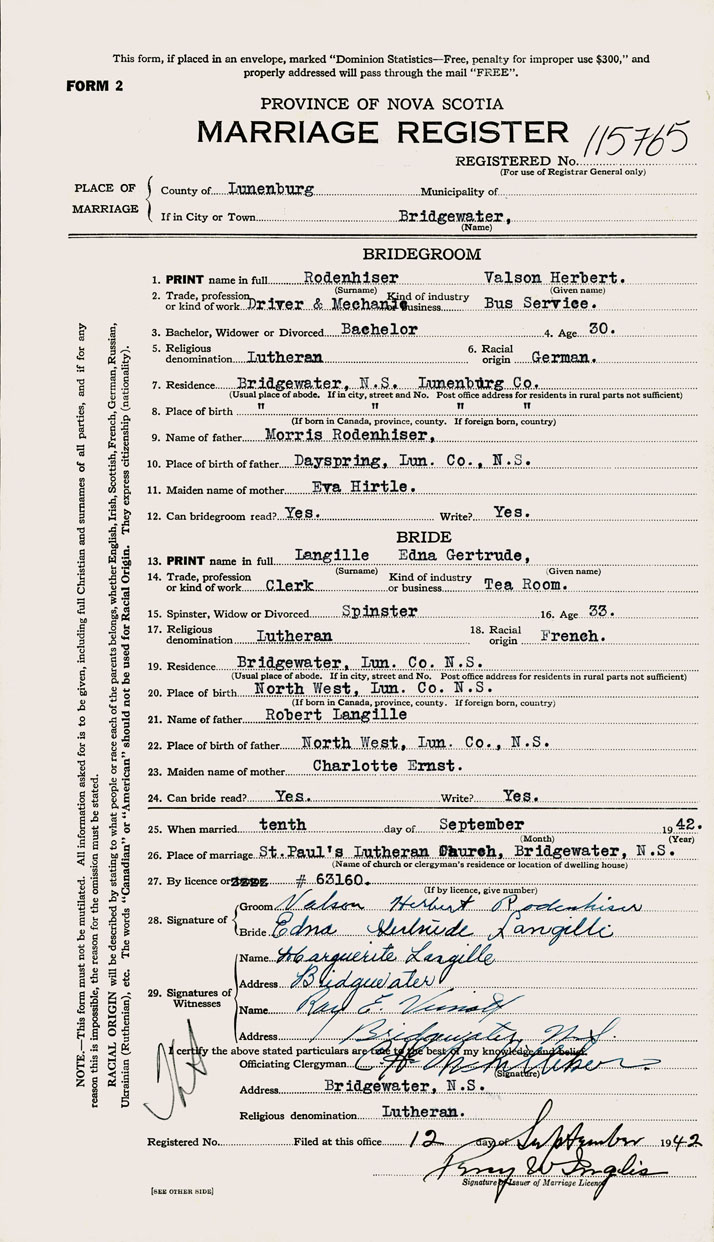 This form, if placed in an envelope, marked "Dominion Statistics—Free, penalty for improper use $300," and
properly addressed will pass through the mail "FREE".
FORM 2
PROVINCE OF NOVA SCOTIA
MARRIAGE REGISTER
REGISTERED No. 115765
(For use of Registrar General only)
PLACE OF MARRIAGE
County of Lunenburg Municipality of
If in City or Town Bridgewater,
(Name)
BRIDEGROOM
1. PRINT name in full Rodenhiser Valson Herbert.
(Surname) (Given name)
2. Trade, profession or kind of work Driver & Mechanic Kind of industry or business Bus Service.
3. Bachelor, Widower or Divorced Bachelor 4. Age 30.
5. Religious denomination Lutheran 6. Racial origin German.
7. Residence Bridgewater, N.S. Lunenburg Co.
(Usual place of abode. If in city, street and No. Post office address for residents in rural parts not sufficient)
8. Place of birth " " " "
(If born in Canada, province, county. If foreign born, country)
9. Name of father Morris Rodenhiser,
10. Place of birth of father Dayspring, Lun. Co., N.S.
11. Maiden name of mother Eva Hirtle.
12. Can bridegroom read? Yes. Write? Yes.
BRIDE
13. PRINT name in full Langille Edna Gertrude,
(Surname) (Given name)
14. Trade, profession or kind of work Clerk Kind of industry or business Tea Room.
15. Spinster, Widow or Divorced Spinster 16. Age 33.
17. Religious denomination Lutheran 18. Racial origin French.
19. Residence Bridgewater, Lun. Co. N.S.
(Usual place of abode. If in city, street and No. Post office address for residents in rural parts not sufficient)
20. Place of birth North West, Lun. Co. N.S.
(If born in Canada, province, county. If foreign born, country)
21. Name of father Robert Langille
22. Place of birth of father North West, Lun. Co., N.S.
23. Maiden name of mother Charlotte Ernst.
24. Can bride read? Yes. Write? Yes.
25. When married tenth day of September 1942.
(Month) (Year)
26. Place of marriage St.Paul's Lutheran Church, Bridgewater, N.S.
(Name of church or clergyman's residence or location of dwelling house)
27. By licence or # 63160.
(If by licence, give number)
28. Signature of
Groom Valson Herbert Rodenhiser
Bride Edna Gertrude Langille
29. Signatures of Witnesses
Name Marguerite Langille
Address Bridgewater
Name Ray E.
Address Bridgewater, N.S.
I certify the above stated particulars are true to the best of my knowledge and belief.
Officiating Clergyman
(Signature)
Address Bridgewater, N.S.
Religious denomination Lutheran.
Registered No. Filed at this office 12 day of September 1942
Percy W Inglis
Signature of Issuer of Marriage Licence
[SEE OTHER SIDE]
NOTE.—This form must not be mutilated. All information asked for is to be given, including full Christian and surnames of all parties, and if for any
reason this is impossible, the reason for the omission must be stated.
RACIAL ORIGIN will be described by stating to what people or race each of the parents belongs, whether English, Irish, Scottish, French, German, Russian,
Ukrainian (Ruthenian), etc. The words "Canadian" or "American" should not be used for Racial Origin. They express citizenship (nationality).